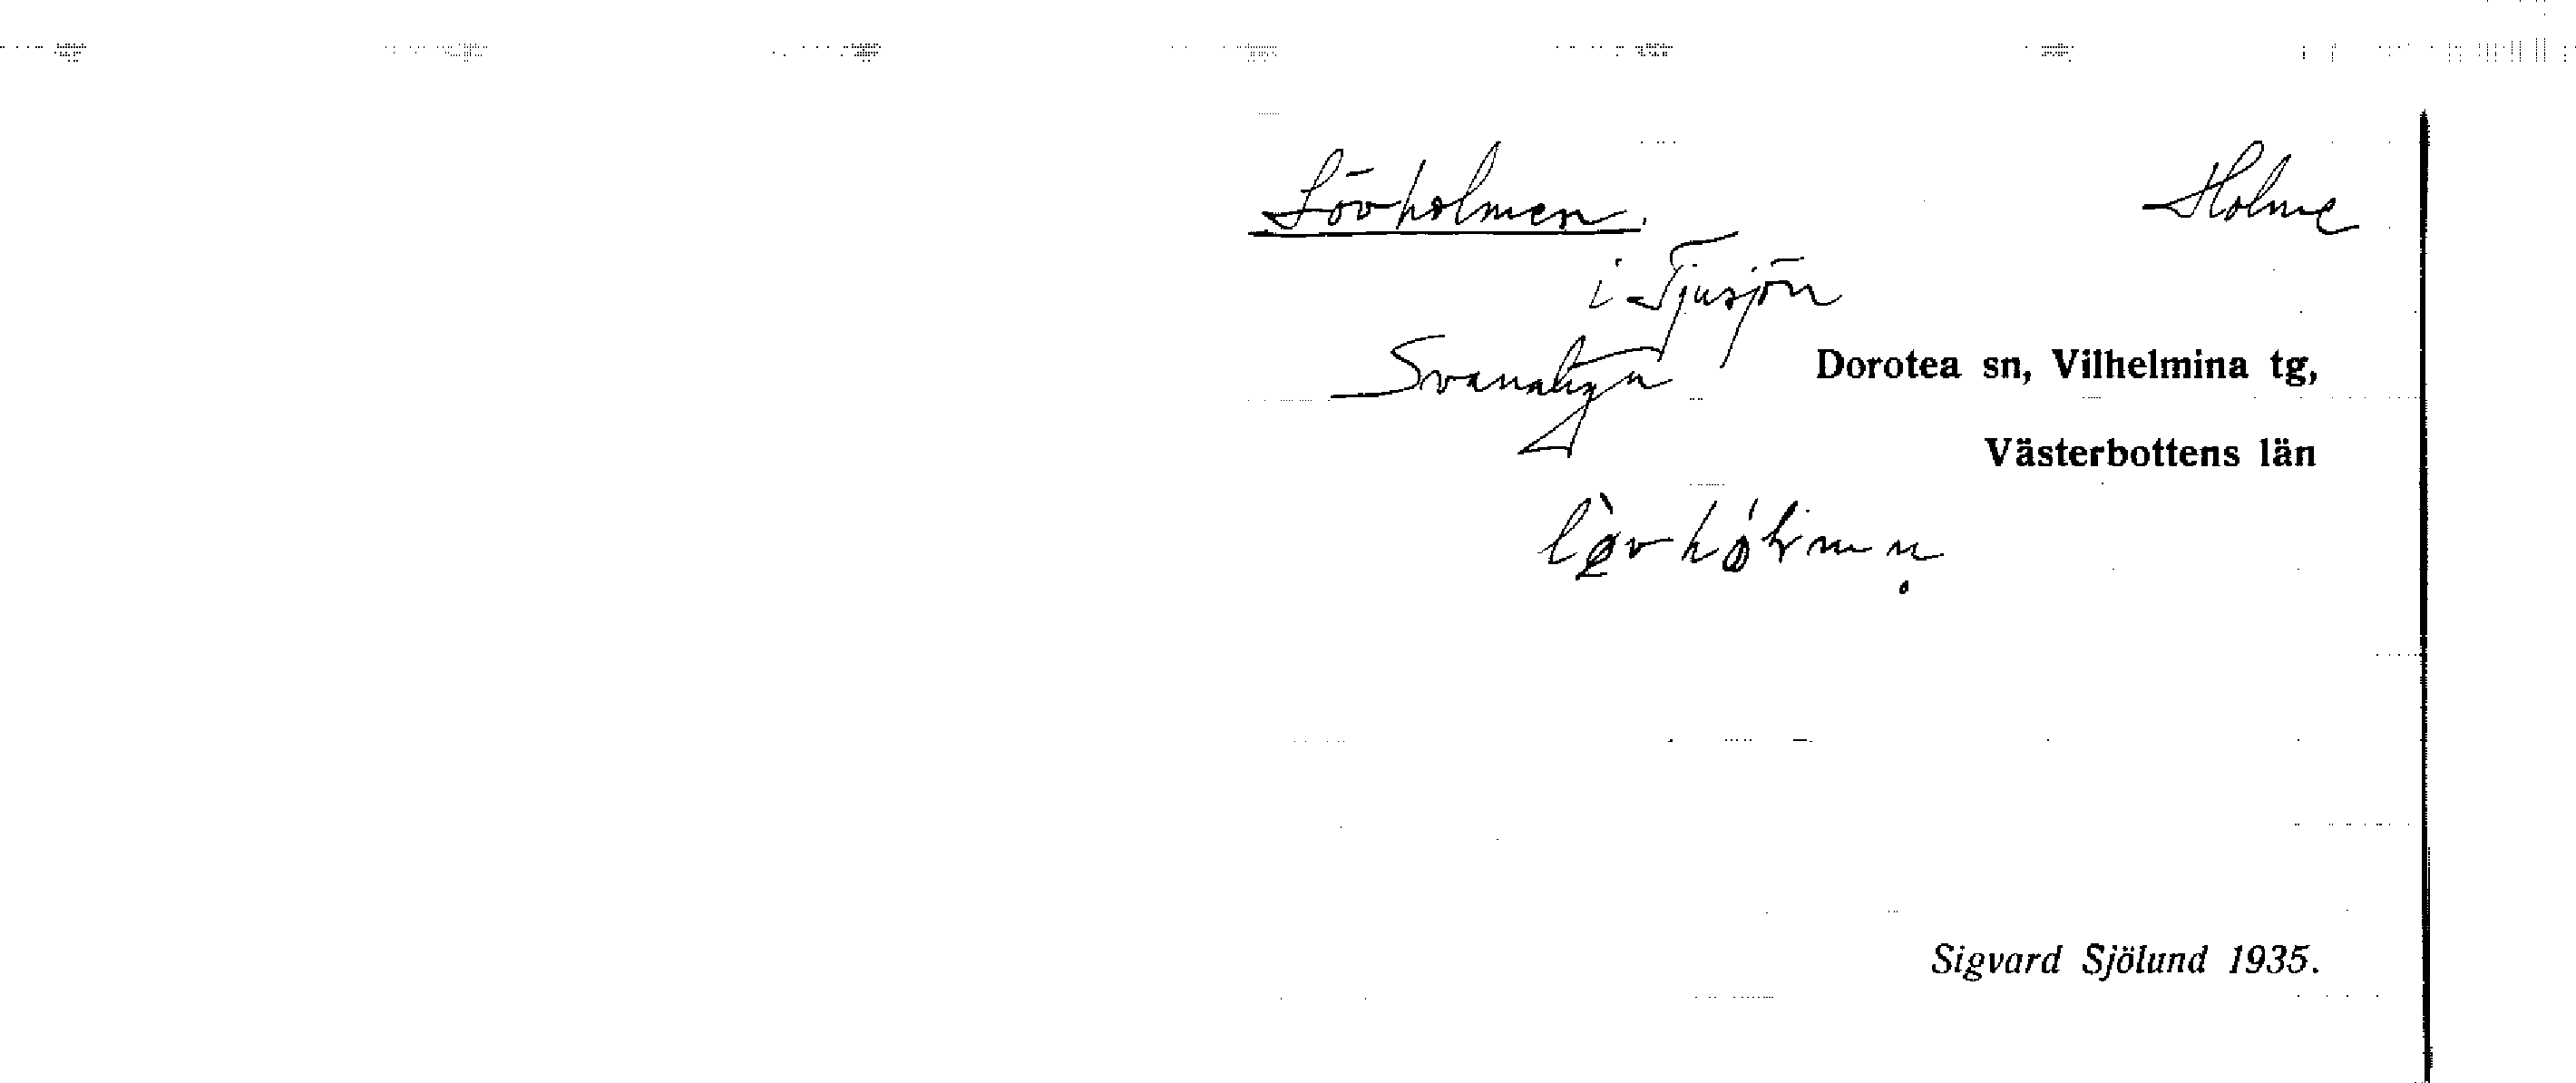 Lövholmen. Holme
i Tjusjön
Svanatjn Dorotea sn, Vilhelmina tg,
Västerbottens län
Sigvard Sjölund 1935.